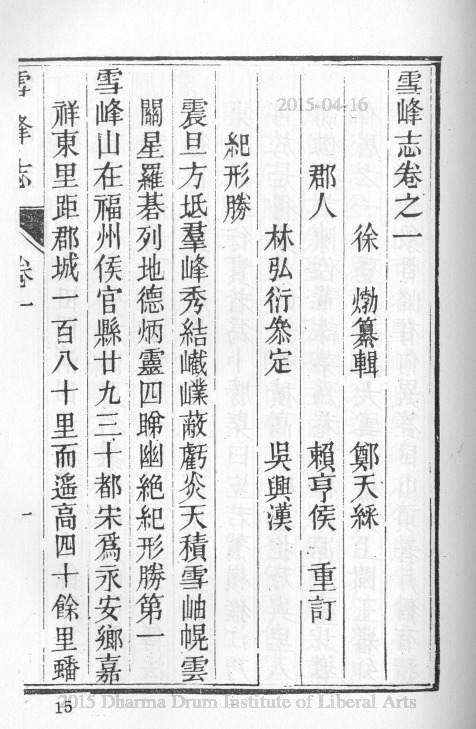 雪峰志卷之一
徐𤊹纂輯 鄭天
郡人 賴亨侯 重訂
林弘衍叅定 吳興漢
紀形勝
震旦方坻羣峰秀結巀嶫蔽虧炎天積雪岫幌雲
關星羅碁列地德炳靈四睇幽絕紀形勝第一
雪峰山在福州侯官縣廿九三十都宋爲永安鄉嘉
祥東里距郡城一百八十里而遙高四十餘里蟠
雪峰志 卷一 一
15
2015-04-16
2015 Dharma Drum Institute of Liberal Arts